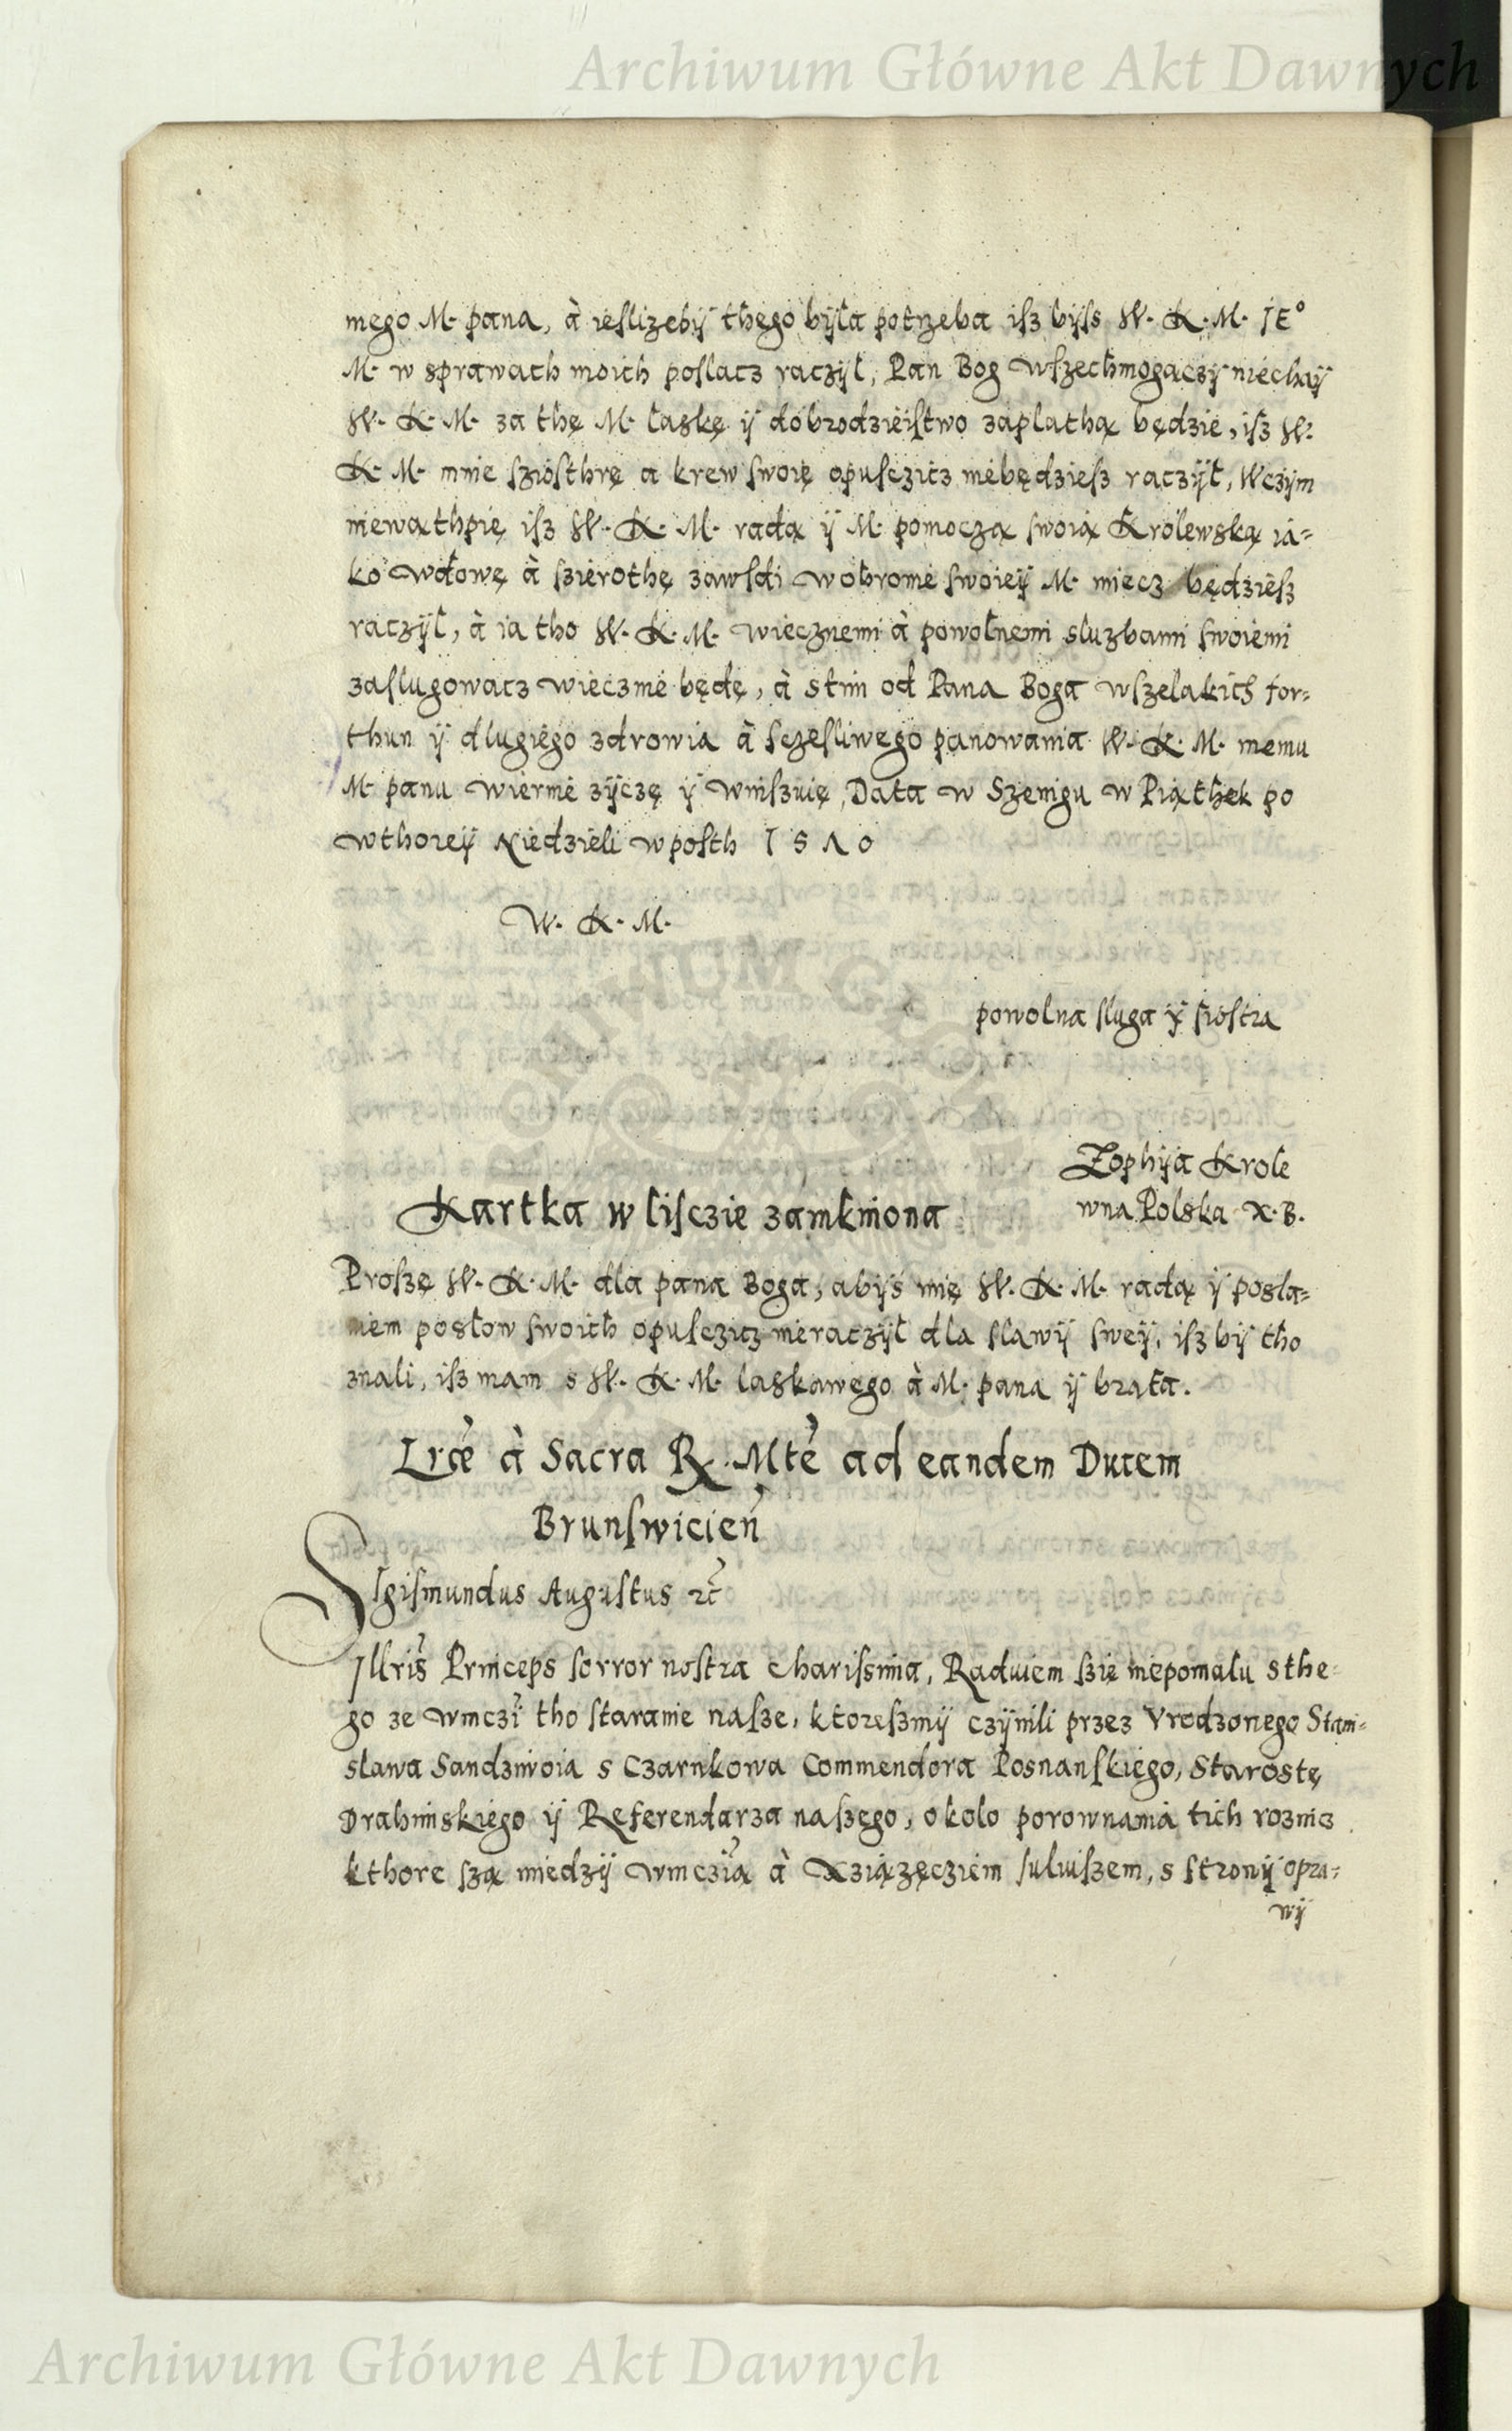 Archiwum Główne Akt Dawnych
mego M. pana, à ieslizebÿ thego bÿla potrzeba isz bÿss W. K. M. JEº
M. w sprawach moich poslacz raczÿl, Pan Bog wszechmogaczÿ niechaÿ
W. K. M. za thę M. laskę ÿ dobrodzieistwo zaplathą będzie, isz W.
K. M. mnie sziosthrę a krew swoię opusczicz niebędziesz raczÿl, Wczÿm
niewąthpię isz W. K. M. radą ÿ M. pomoczą swoią Krolewską ia-
ko wdowę à szierothę zawsdi w obronie swoieÿ M. miecz będziesz
raczÿl, à ia tho W. K. M. wiecznemi à powolnemi sluzbami swoiemi
zaslugowacz wiecznie będę, à stim od Pana Boga wszelakich for-
thun ÿ dlugiego zdrowia à sczesliwego panowania W. K. M. memu
M. panu wiernie zÿczę ÿ winszuię, Data w Szenigu w Piąthek po
wthoreÿ Niedzieli w posth 1 5 7 0
W. K. M.
powolna sluga ÿ siostra
Zophÿa Krole
wna Polska X. B.
Kartka w lisczie zamkniona
Proszę W. K. M. dla pana Boga, abÿs mię W. K. M. radą ÿ posla-
niem poslow swoich opusczicz nieraczÿl dla slawÿ sweÿ, isz bÿ tho
znali, isz mam s W. K. M. laskawego à M. pana ÿ brata.
Lræ à Sacra R. Mte ad eandem Ducem
Brunswicien
Sigismundus Augustus etc
Illris Princeps sorror nostra charissima, Raduiem szię niepomalu s the-
go ze wmczi tho staranie nasze, ktoreszmÿ czÿnili przez Vrodzonego Stani-
slawa Sandziwoia s Czarnkowa Commendora Posnanskiego, Starostę
Drahimskiego ÿ Referendarza naszego, okolo porownania tich roznicz
kthore szą miedzÿ wmczią à Xziązęcziem Juliuszem, s stronÿ opra-
wÿ
Archiwum Główne Akt Dawnych